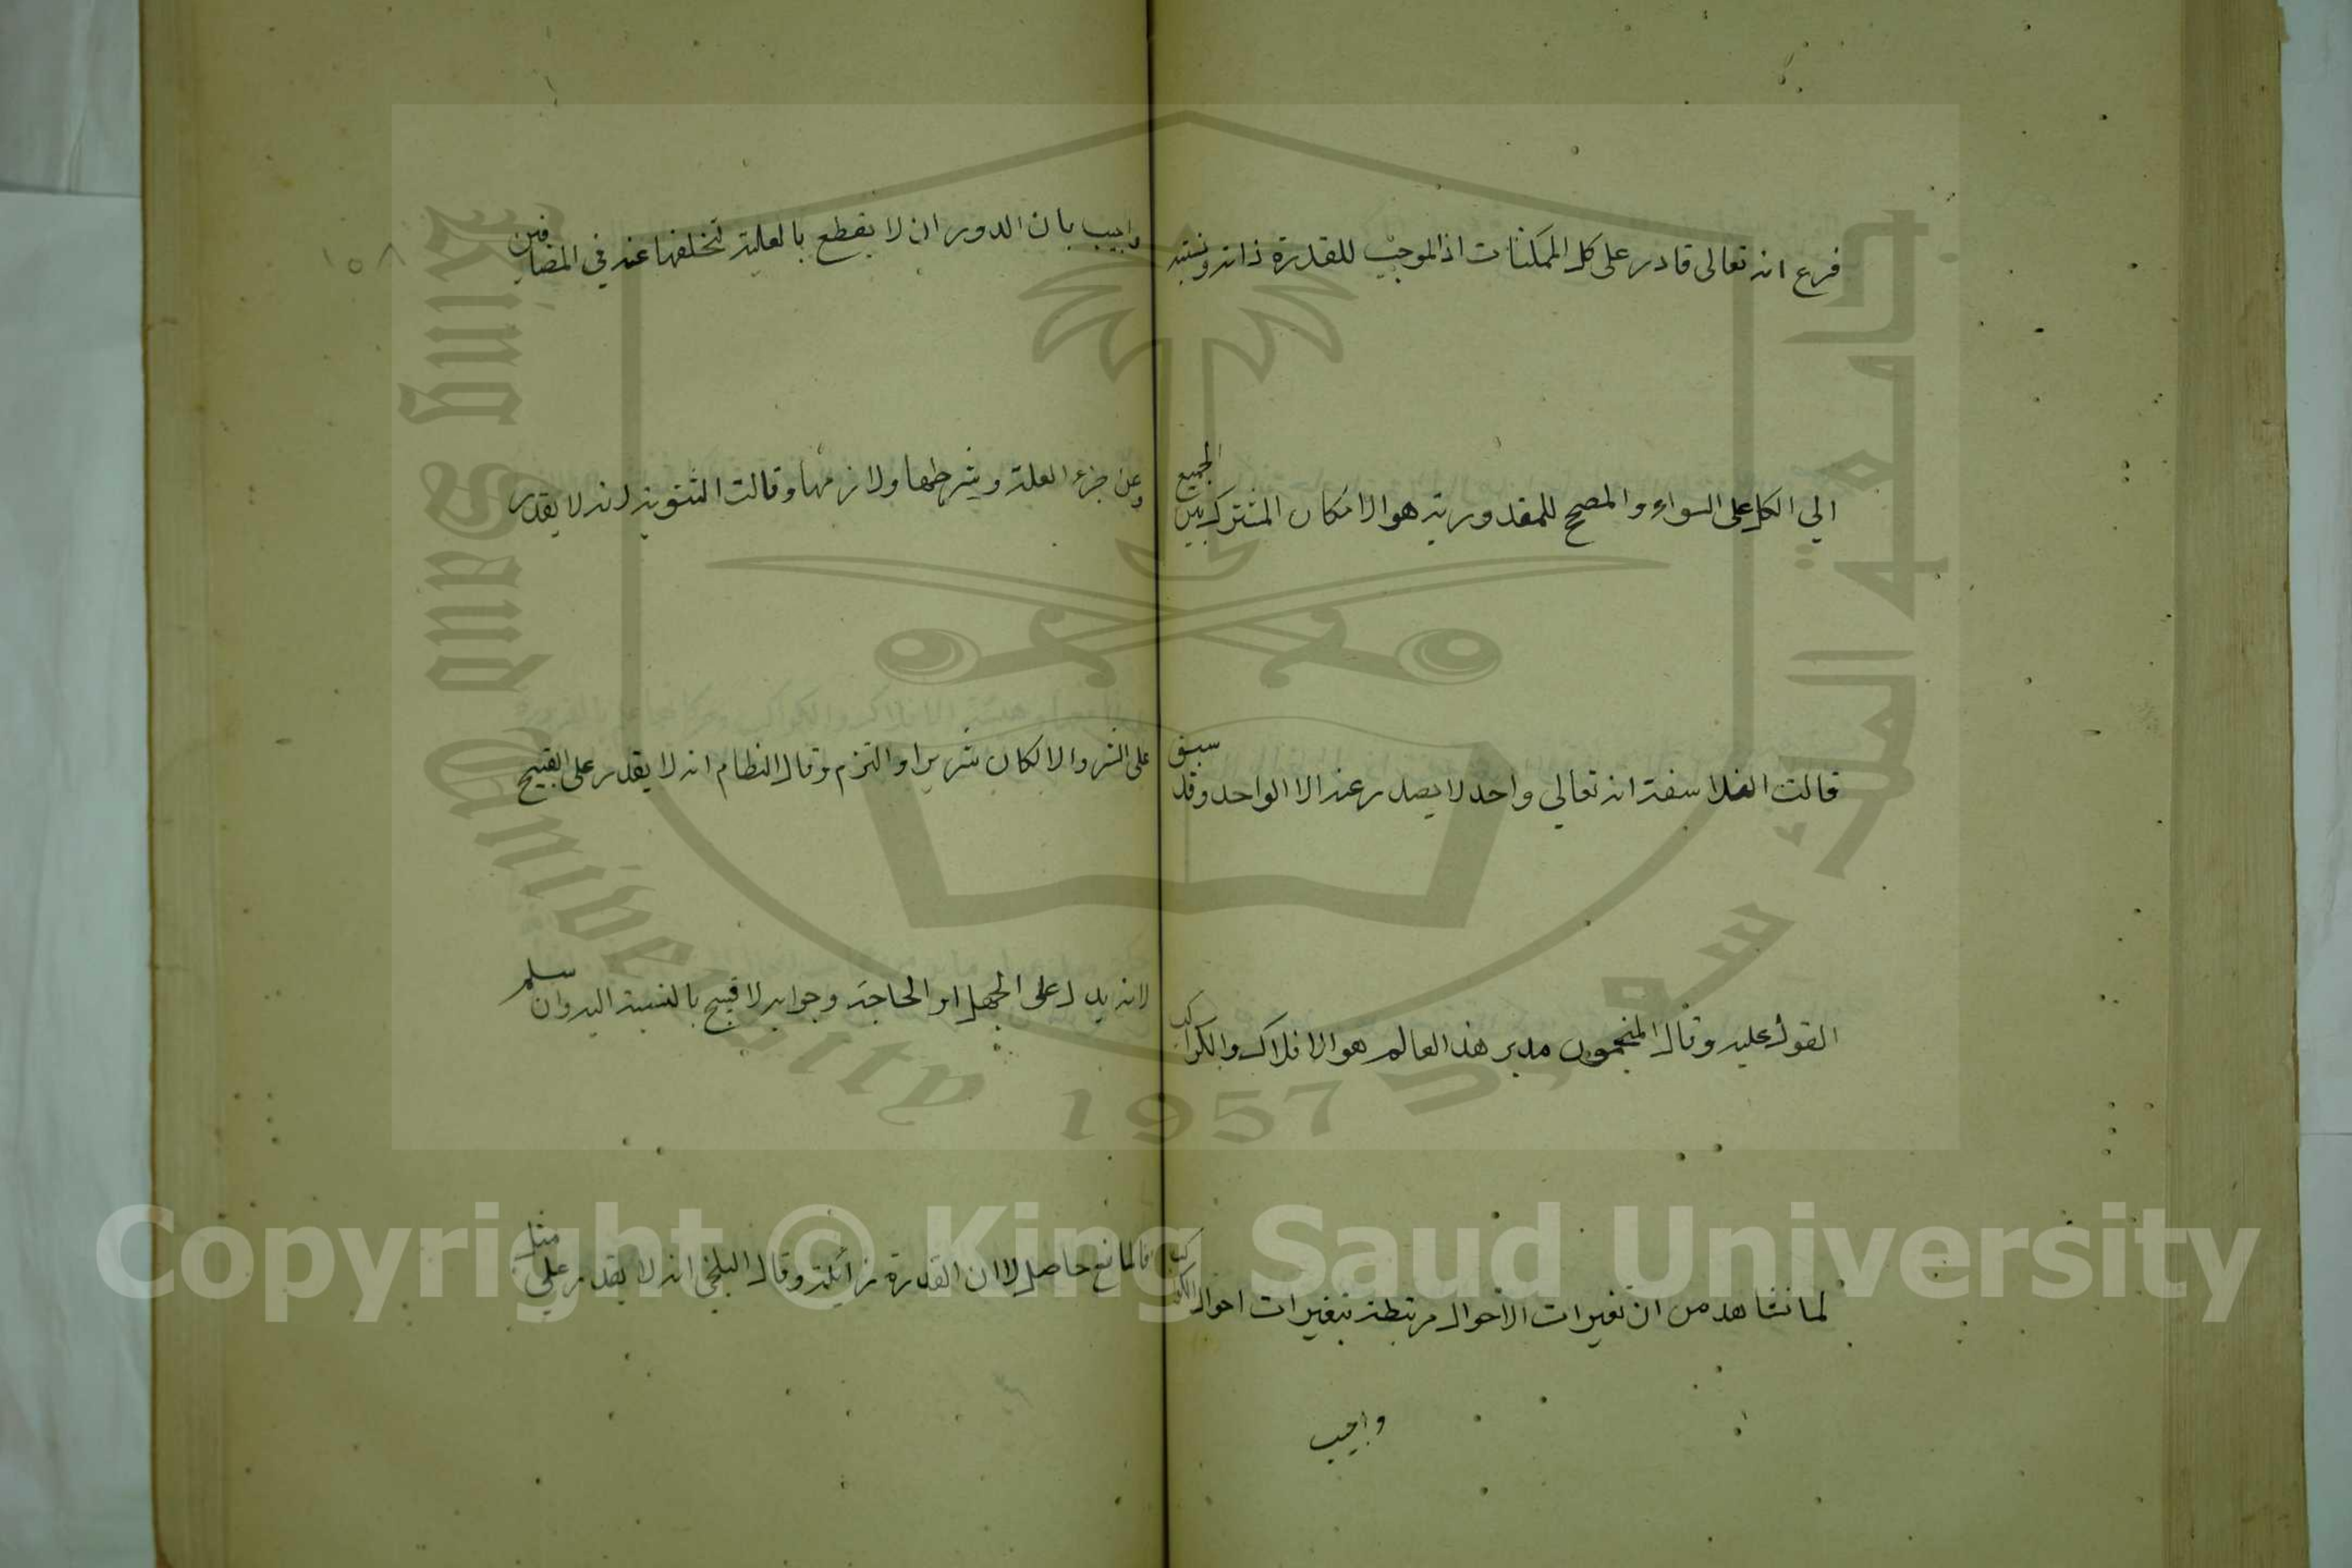 فرع انه تعالى قادر على كل الممكنات اذ الموجب للقدرة ذاته ونسبته
الي الكل على السواء والمصحح للمقدورية هو الامكان المشترك بين الجميع
قالت الفلاسفة انه تعالي واحد لا يصدر عنه الا الواحد وقد سبق
القول عليه وقال المنجمون مدبر هذا العالم هو الافلاك والكواكب
لما نشاهد من ان تغيرات الاحوال مرتبطة بتغيرات احوال الكواكب
واجيب
١٥٨
واجيب بان الدوران لا يقطع بالعلية لتخلفها عنه في المضافين
وعن جزء العلة وشرطها ولازمها وقالت الثنوية انه لا يقدر
على الشر والا لكان شريرا والتزم وقال النظام انه لا يقدر على القبيح
لانه يدل على الجهل او الحاجة وجوابه لا قبيح بالنسبة اليه وان سلم
فالمانع حاصل لا ان القدرة زائلة وقال البلخي انه لا يقدر علي مثل
جامعة الملك سعود
King Saud University
1957
Copyright © King Saud University